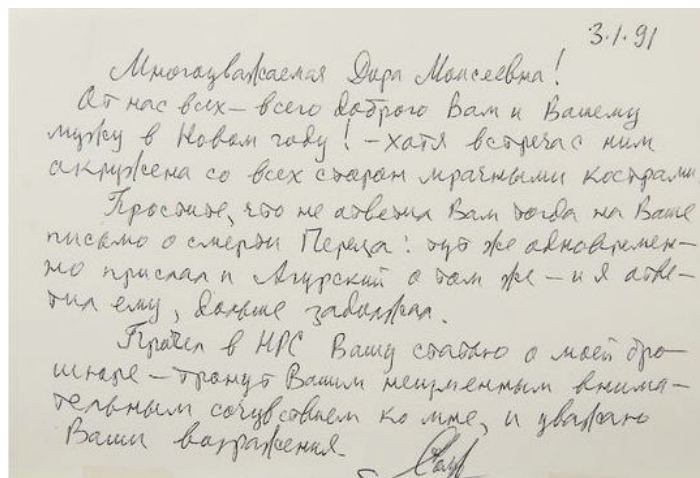 3.1.91
Многоуважаемая Дора Моисеевна!
От нас всех – всего доброго Вам и Вашему
мужу в Новом году! – хотя встреча с ним
окружена со всех сторон мрачными кострами
Простите, что не ответил Вам тогда на Ваше
письмо о смерти Переца: тут же одновремен-
но прислал и Агурский о том же – и я отве-
тил ему, дальше задолжал.
Прочёл в НРС Вашу статью о моей бро-
шюре – тронут Вашим неизменным внима-
тельным сочувствием ко мне, и уважаю
Ваши возражения.